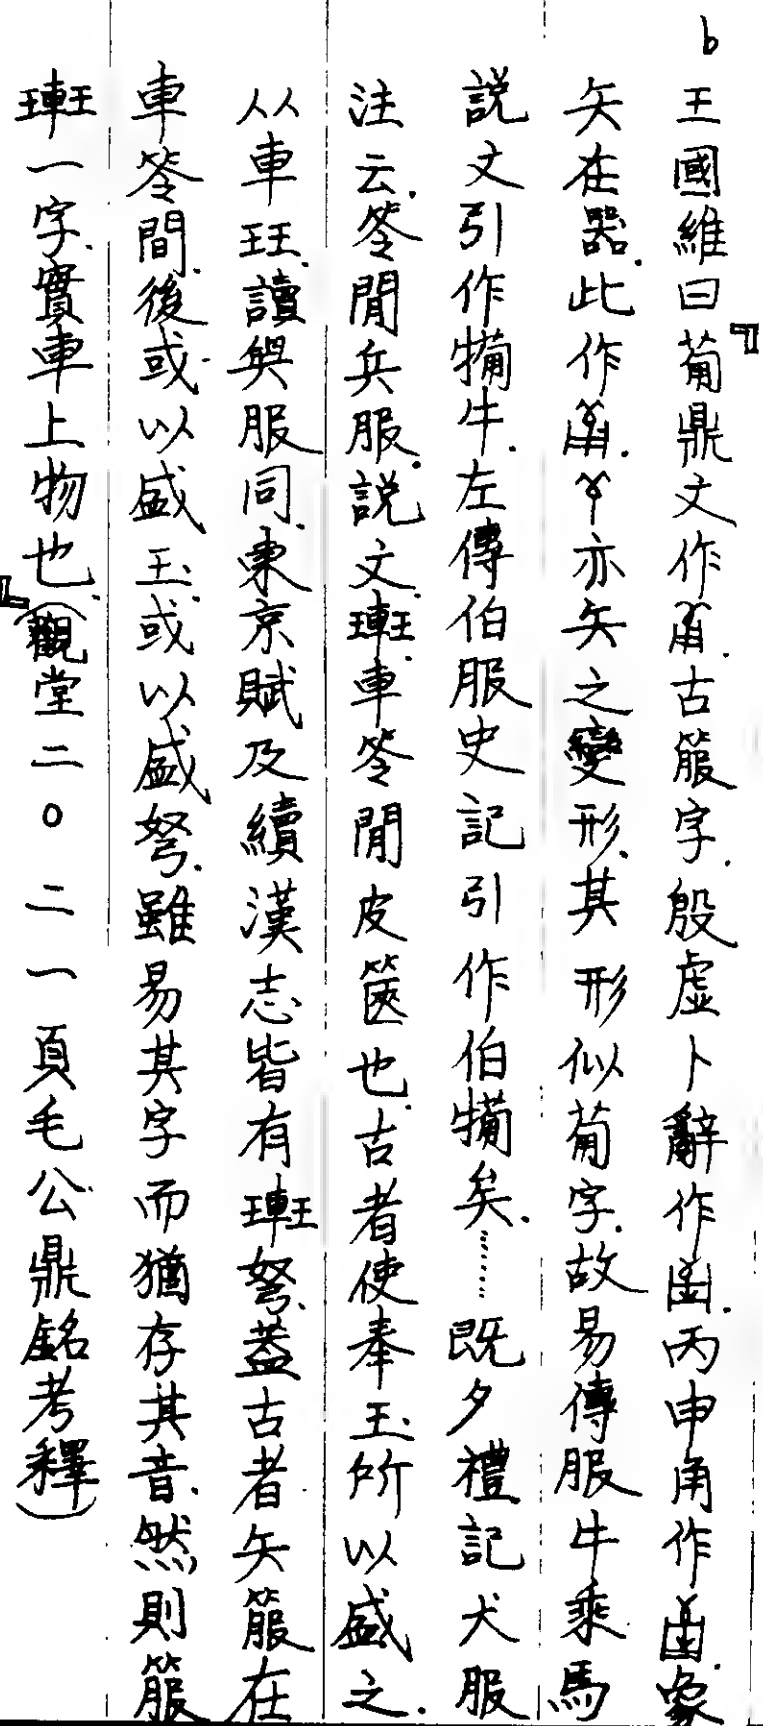 b 王國維曰『葡鼎文作.古箙字.殷虛卜辭作.丙申角作.象
矢在器.此作.亦矢之變形.其形似葡字.故易傳服牛乘馬
説文引作犕牛.左傳伯服史記引作伯犕矣.……既夕禮記犬服
注云.笭閒兵服.説文.車笭閒皮篋也.古者使奉玉所以盛之.
从車玨.讀與服同.東京賦及續漢志皆有弩.蓋古者矢箙在
車笭間.後或以盛玉.或以盛弩.雖易其字而猶存其音.然則箙
一字.實車上物也.』(觀堂二〇二一頁毛公鼎銘考釋)